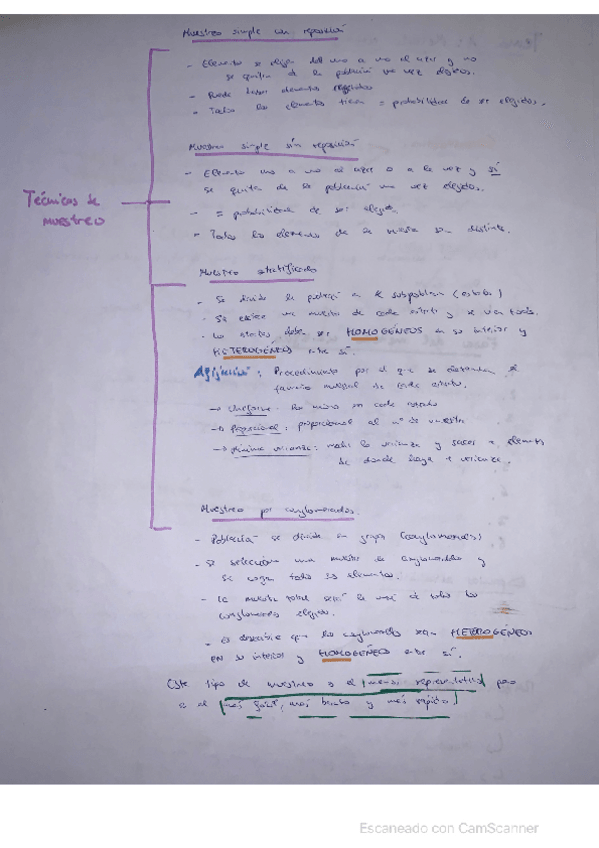 Muestreo simple con reposición
- Elemento se eligen del uno a uno al azar y no
se quitan de la población una vez elegidos.
- Puede haber elementos repetidos
- Todos los elementos tienen = probabilidad de ser elegidos.
Muestreo simple sin reposición
- Elemento uno a uno al azar o a la vez y sí
se quita de la población una vez elegidos.
- = probabilidad de ser elegido
- Todos los elementos de la muestra son distintos.
Técnicas de
muestreo
Muestreo estratificado
- Se divide la población en k subpoblación (estratos)
- Se extrae una muestra de cada estrato y se
- Los estratos deben ser HOMOGÉNEOS en su interior y
HETEROGÉNEOS entre sí.
Afijación: Procedimiento por el que se determina el
tamaño muestral de cada estrato.
→ Uniforme: los mismos en cada estrato
→ Proporcional: proporcional al nº de
→ mínima varianza: medir la varianza y sacar + elementos
de donde haya + varianza.
Muestreo por conglomerados
- Población se divide en grupos (conglomerados)
- Se selecciona una muestra de conglomerados y
se cogen todos sus elementos.
- La muestra total será la de todos los
conglomerados elegidos.
- Es deseable que los conglomerados sean HETEROGÉNEOS
en su interior y HOMOGÉNEOS entre sí.
Este tipo de muestreo es el menos representativo pero
es el más fácil, más barato y más rápido.
Escaneado con CamScanner